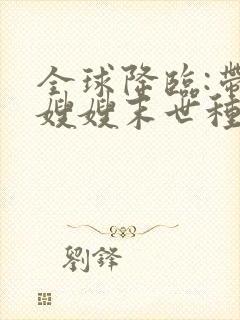 全球降臨:帶
嫂嫂末世種
劉鋒